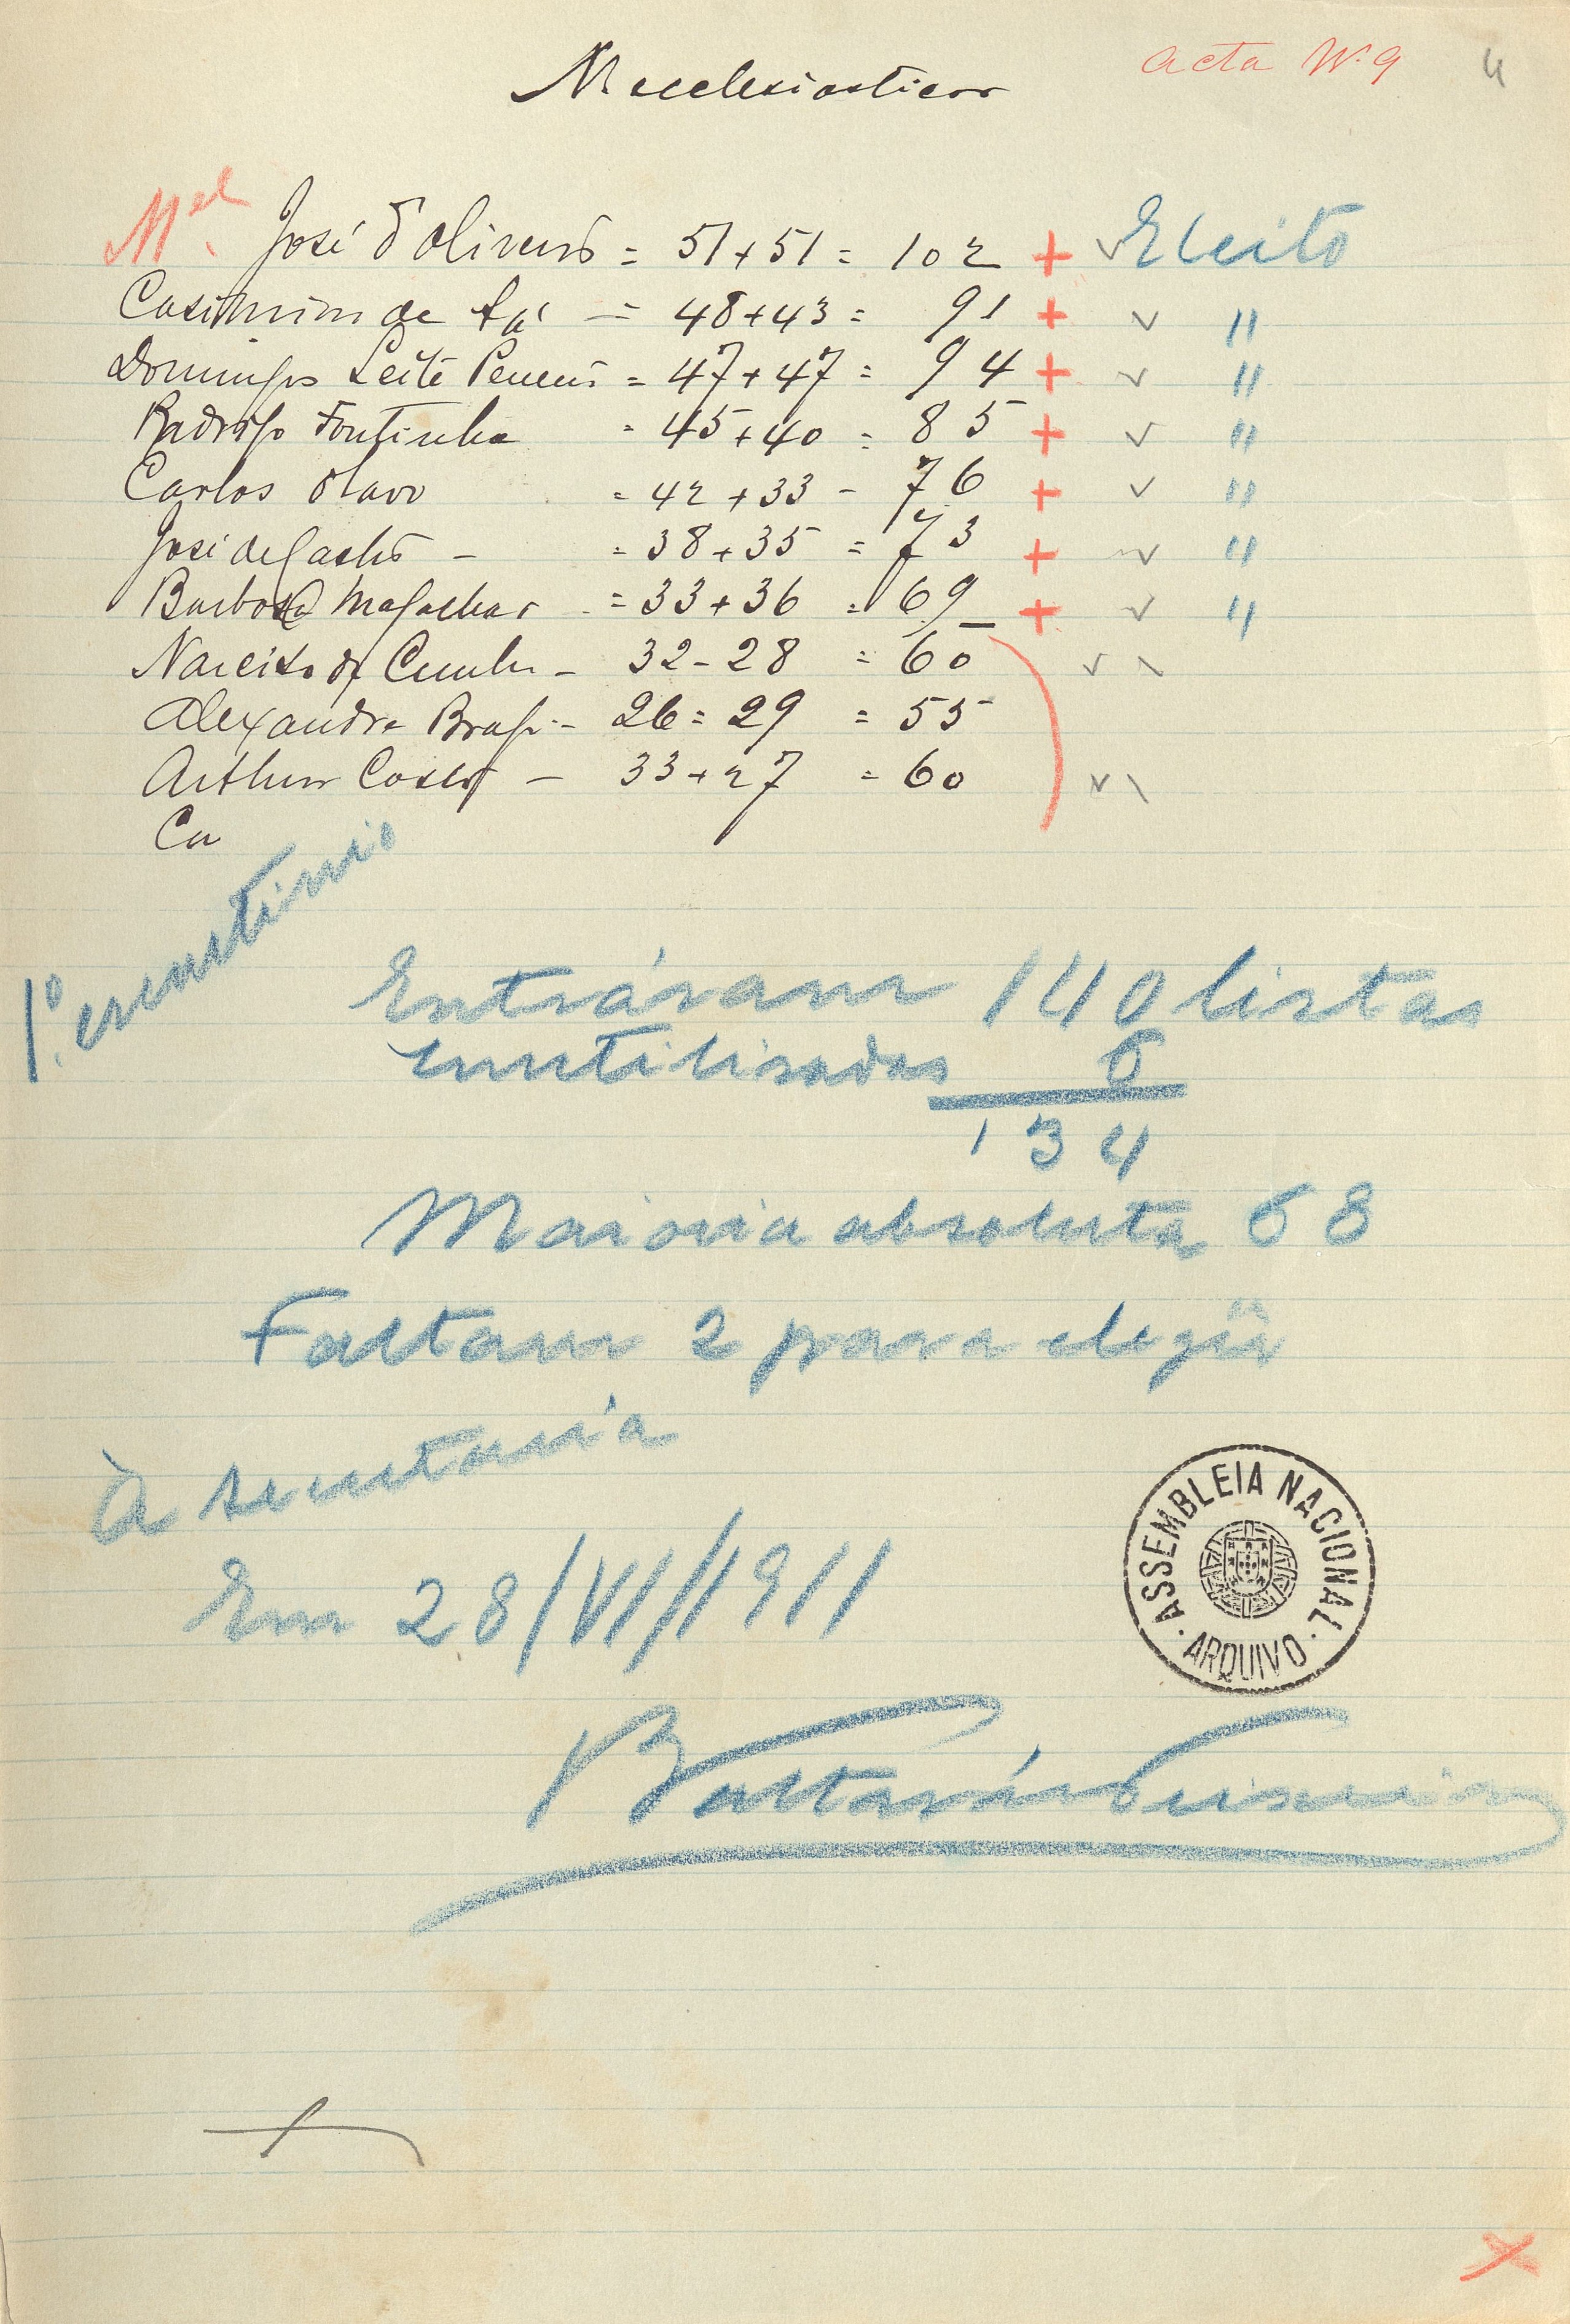 acta Nº 9 4
Necclesiasticos
Mel. José d'Oliveira = 51+51 = 102 + Eleito
Casimiro de Sá = 48+43 = 91 + "
Domingos Leite Pereira = 47+47 = 94 + "
Rodrigo Fontinha = 45+40 = 85 + "
Carlos Olavo = 42+33 - 76 + "
José de Castro - = 38+35 = 73 + "
Barbosa Magalhas = 33+36 = 69 + "
Narciso d Cunha - 32-28 = 60
Alexandre Braga - 26=29 = 55
Arthur Costa - 33+27 = 60
Ca
1.º escrutinio
Entráram 140 listas
inutilisadas 6
134
Maioria absoluta 68
Faltam 2 para elegir
À secretaria
Em 28/VI/1911
Baltasár Teixeira
ASSEMBLEIA NACIONAL
ARQUIVO